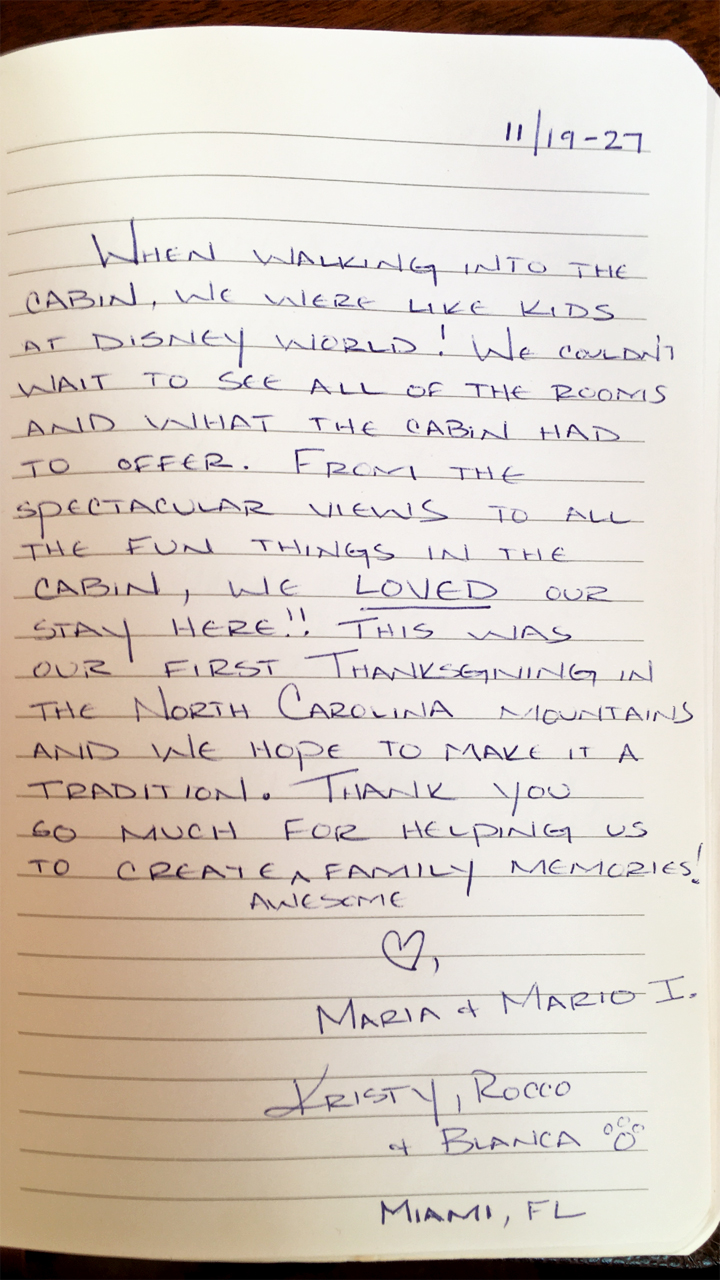 11/19-27
WHEN WALKING INTO THE
CABIN, WE WERE LIKE KIDS
AT DISNEY WORLD! WE COULDN'T
WAIT TO SEE ALL OF THE ROOMS
AND WHAT THE CABIN HAD
TO OFFER. FROM THE
SPECTACULAR VIEWS TO ALL
THE FUN THINGS IN THE
CABIN, WE LOVED OUR
STAY HERE!! THIS WAS
OUR FIRST THANKSGIVING IN
THE NORTH CAROLINA MOUNTAINS
AND WE HOPE TO MAKE IT A
TRADITION. THANK YOU
SO MUCH FOR HELPING US
TO CREATE ^ FAMILY MEMORIES!
AWESOME
♡,
MARIA & MARIO I.
KRISTY, ROCCO
& BLANCA
MIAMI, FL